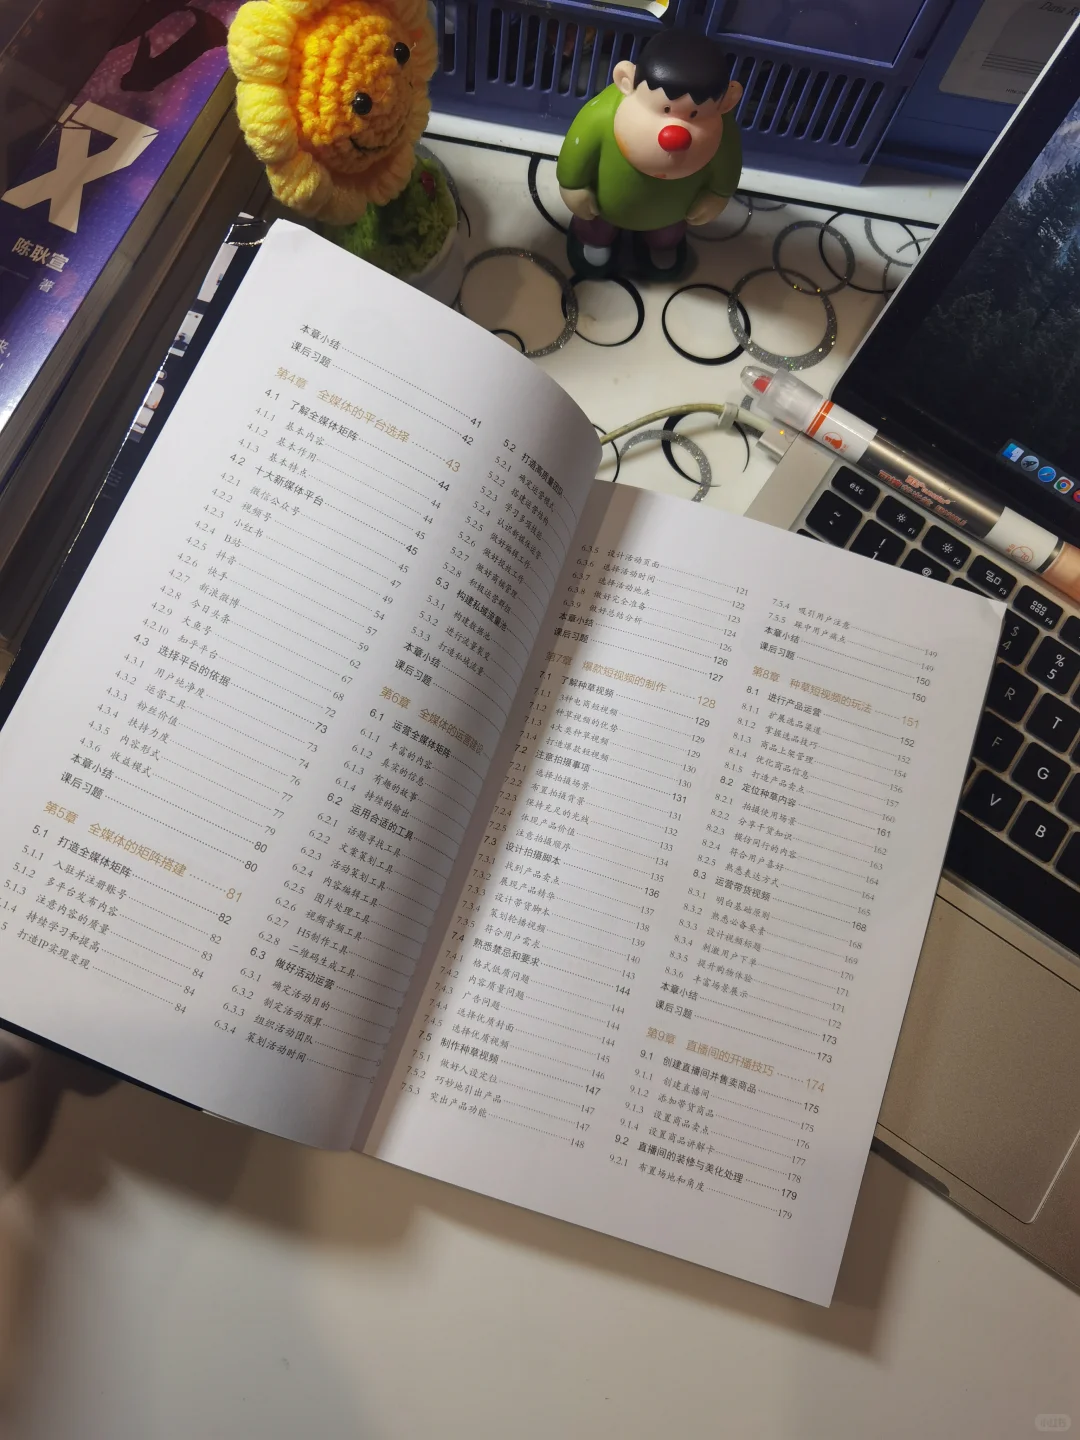 陈耿宣
著
本章小结 41
课后习题 42
第4章 全媒体的平台选择 43
4.1 了解全媒体矩阵 44
4.1.1 基本内容 44
4.1.2 基本作用 44
4.1.3 基本特点 45
4.2 十大新媒体平台 45
4.2.1 微信公众号 45
4.2.2 视频号 47
4.2.3 小红书 49
4.2.4 B站 54
4.2.5 抖音 57
4.2.6 快手 59
4.2.7 新浪微博 62
4.2.8 今日头条 67
4.2.9 大鱼号 68
4.2.10 知乎平台 72
4.3 选择平台的依据 73
4.3.1 用户纯净度 73
4.3.2 运营工具 74
4.3.3 粉丝价值 76
4.3.4 扶持力度 77
4.3.5 内容形式 77
4.3.6 收益模式 79
本章小结 80
课后习题 80
第5章 全媒体的矩阵搭建 81
5.1 打造全媒体矩阵 82
5.1.1 入驻并注册账号 82
5.1.2 多平台发布内容 83
5.1.3 注意内容的质量 84
5.1.4 持续学习和提高 84
打造IP实现变现 84
5.2 打造高质量团队
5.2.1 确定运营模式
5.2.2 搭建运营结构
5.2.3 学习多项技能
5.2.4 认识新媒体运营
5.2.5 做好编辑工作
5.2.6 做好投放工作
5.2.7 做好商铺管理
5.2.8 积极运营跟组
5.3 构建私域流量池
5.3.1 构建数据池
5.3.2 进行流量裂变
5.3.3 打造私域流量
本章小结
课后习题
第6章 全媒体的运营路径
6.1 运营全媒体矩阵
6.1.1 丰富的内容
6.1.2 真实的信息
6.1.3 有趣的故事
6.1.4 持续的输出
6.2 运用合适的工具
6.2.1 话题寻找工具
6.2.2 文案策划工具
6.2.3 活动策划工具
6.2.4 内容编辑工具
6.2.5 图片处理工具
6.2.6 视频音频工具
6.2.7 H5制作工具
6.2.8 二维码生成工具
6.3 做好活动运营
6.3.1 确定活动目的
6.3.2 制定活动预算
6.3.3 组织活动团队
6.3.4 策划活动时间
6.3.5 设计活动页面 121
6.3.6 选择活动时间 122
6.3.7 选择活动地点 123
6.3.8 做好完全准备 124
6.3.9 做好总结分析 126
本章小结 126
课后习题 127
第7章 爆款短视频的制作 128
7.1 了解种草视频 129
7.1.1 3种电商短视频 129
7.1.2 种草视频的优势 129
7.1.3 4大类种草视频 130
7.1.4 打造爆款短视频 130
7.2 注意拍摄事项 131
7.2.1 选择拍摄场景 131
7.2.2 布置拍摄背景 132
7.2.3 保持充足的光线 133
7.2.4 体现产品价值 134
7.2.5 注意拍摄顺序 135
7.3 设计拍摄脚本 136
7.3.1 找到产品卖点 137
7.3.2 展现产品精华 138
7.3.3 设计带货脚本 139
7.3.4 策划轮播视频 140
7.3.5 符合用户需求 143
7.4 熟悉禁忌和要求 144
7.4.1 格式低质问题 144
7.4.2 内容质量问题 144
7.4.3 广告问题 144
7.4.4 选择优质封面 145
7.4.5 选择优质视频 146
7.5 制作种草视频 147
7.5.1 做好人设定位 147
7.5.2 巧妙地引出产品 147
7.5.3 突出产品功能 148
7.5.4 吸引用户注意 149
7.5.5 踩中用户痛点 149
本章小结 150
课后习题 150
第8章 种草短视频的玩法 151
8.1 进行产品运营 152
8.1.1 扩展选品渠道 152
8.1.2 掌握选品技巧 154
8.1.3 商品上架管理 156
8.1.4 优化商品信息 157
8.1.5 打造产品卖点 160
8.2 定位种草内容 161
8.2.1 拍摄使用场景 162
8.2.2 分享干货知识 163
8.2.3 模仿同行的内容 164
8.2.4 符合用户喜好 164
8.2.5 熟悉表达方式 165
8.3 运营带货视频 168
8.3.1 明白基础原则 168
8.3.2 熟悉必备要素 169
8.3.3 设计视频标题 170
8.3.4 刺激用户下单 171
8.3.5 提升购物体验 171
8.3.6 丰富场景展示 172
本章小结 173
课后习题 173
第9章 直播间的开播技巧 174
9.1 创建直播间并售卖商品 175
9.1.1 创建直播间 175
9.1.2 添加带货商品 176
9.1.3 设置商品卖点 177
9.1.4 设置商品讲解卡 178
9.2 直播间的装修与美化处理 179
9.2.1 布置场地和角度 179
esc
~
!
@
F3
F4
$
4
%
5
R
T
F
G
V
B
小红书